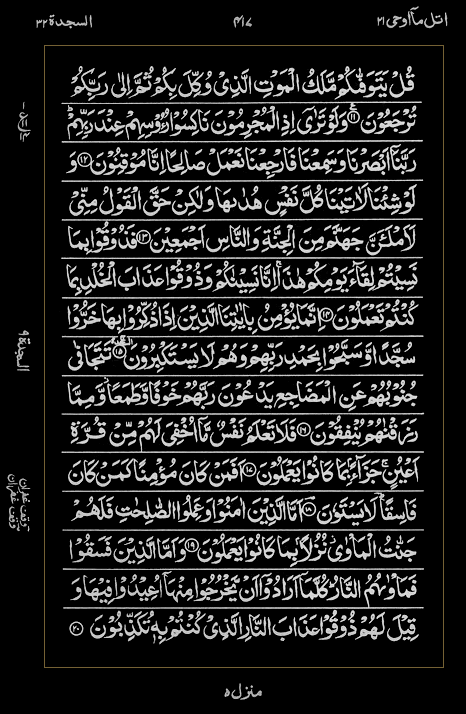 اتل ما اوحی ٢١
٤١٧
السجدة ٣٢
قُلْ يَتَوَفّٰىكُمْ مَّلَكُ الْمَوْتِ الَّذِىْ وُكِّلَ بِكُمْ ثُمَّ اِلٰى رَبِّكُمْ
تُرْجَعُوْنَ ۝١١ وَلَوْ تَرٰٓى اِذِ الْمُجْرِمُوْنَ نَاكِسُوْا رُءُوْسِهِمْ عِنْدَ رَبِّهِمْ ؕ
رَبَّنَآ اَبْصَرْنَا وَسَمِعْنَا فَارْجِعْنَا نَعْمَلْ صَالِحًا اِنَّا مُوْقِنُوْنَ ۝١٢ وَ
لَوْ شِئْنَا لَاٰتَيْنَا كُلَّ نَفْسٍ هُدٰىهَا وَلٰكِنْ حَقَّ الْقَوْلُ مِنِّىْ
لَاَمْلَــَٔنَّ جَهَنَّمَ مِنَ الْجِنَّةِ وَالنَّاسِ اَجْمَعِيْنَ ۝١٣ فَذُوْقُوْا بِمَا
نَسِيْتُمْ لِقَآءَ يَوْمِكُمْ هٰذَا ۚ اِنَّا نَسِيْنٰكُمْ وَذُوْقُوْا عَذَابَ الْخُلْدِ بِمَا
كُنْتُمْ تَعْمَلُوْنَ ۝١٤ اِنَّمَا يُؤْمِنُ بِاٰيٰتِنَا الَّذِيْنَ اِذَا ذُكِّرُوْا بِهَا خَرُّوْا
سُجَّدًا وَّسَبَّحُوْا بِحَمْدِ رَبِّهِمْ وَهُمْ لَا يَسْتَكْبِرُوْنَ ۩ ۝١٥ تَتَجَافٰى
جُنُوْبُهُمْ عَنِ الْمَضَاجِعِ يَدْعُوْنَ رَبَّهُمْ خَوْفًا وَّطَمَعًا ؗ وَّمِمَّا
رَزَقْنٰهُمْ يُنْفِقُوْنَ ۝١٦ فَلَا تَعْلَمُ نَفْسٌ مَّآ اُخْفِىَ لَهُمْ مِّنْ قُرَّةِ
اَعْيُنٍ ۚ جَزَآءًۢ بِمَا كَانُوْا يَعْمَلُوْنَ ۝١٧ اَفَمَنْ كَانَ مُؤْمِنًا كَمَنْ كَانَ
فَاسِقًا ؔؕ لَا يَسْتَوٗنَ ۝١٨ اَمَّا الَّذِيْنَ اٰمَنُوْا وَعَمِلُوا الصّٰلِحٰتِ فَلَهُمْ
جَنّٰتُ الْمَاْوٰى ؗ نُزُلًۢا بِمَا كَانُوْا يَعْمَلُوْنَ ۝١٩ وَاَمَّا الَّذِيْنَ فَسَقُوْا
فَمَاْوٰىهُمُ النَّارُ ؕ كُلَّمَآ اَرَادُوْٓا اَنْ يَّخْرُجُوْا مِنْهَآ اُعِيْدُوْا فِيْهَا وَ
قِيْلَ لَهُمْ ذُوْقُوْا عَذَابَ النَّارِ الَّذِىْ كُنْتُمْ بِهٖ تُكَذِّبُوْنَ ۝٢٠
السجدة ٩
وقف غفران
وقف غفران
منزل ٥